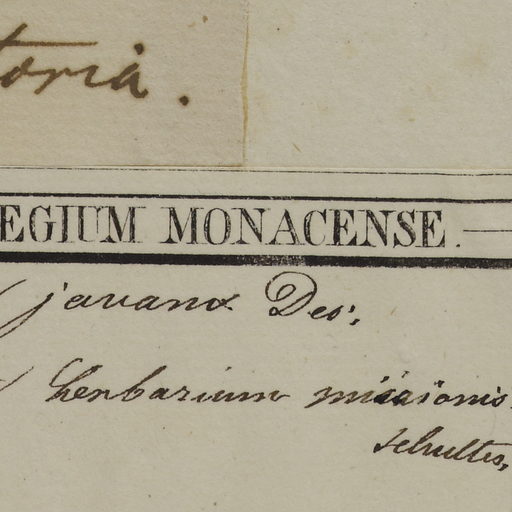 toria.
EGIUM MONACENSE.
javana Des:,
herbarium missionis.
schultes,